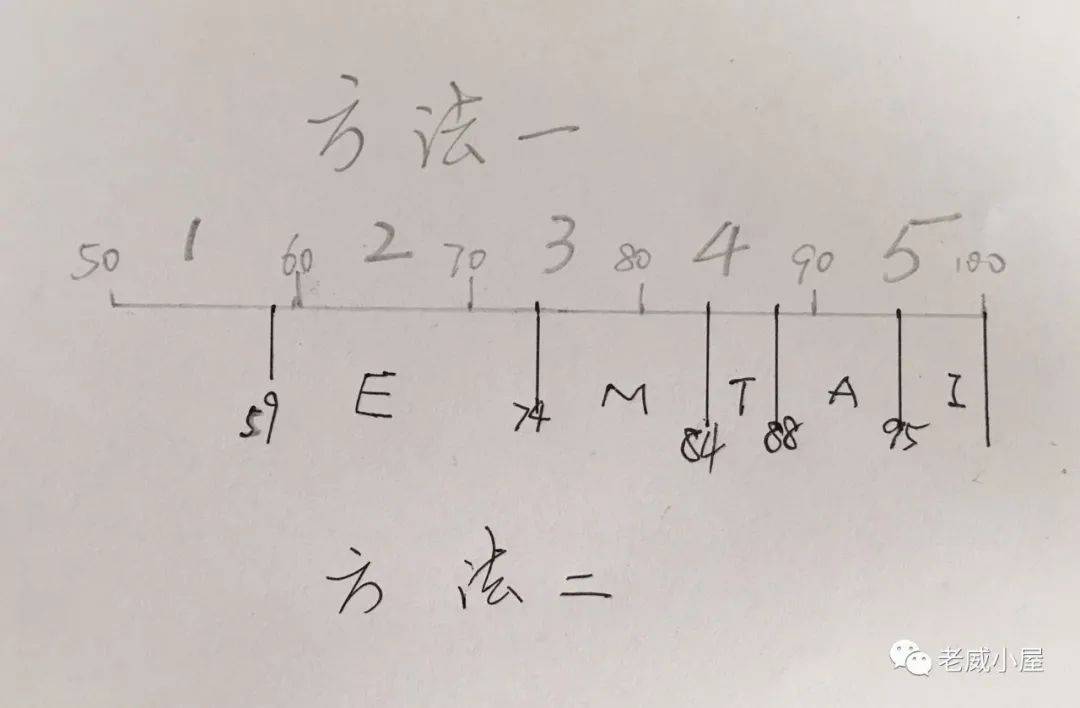 方法一
50 1 60 2 70 3 80 4 90 5 100
E M T A I
59 74 84 88 95
方法二
老威小屋